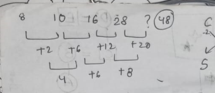 8 10 16 28 ? 48
+2 +6 +12 +20
4 +6 +8
C
S